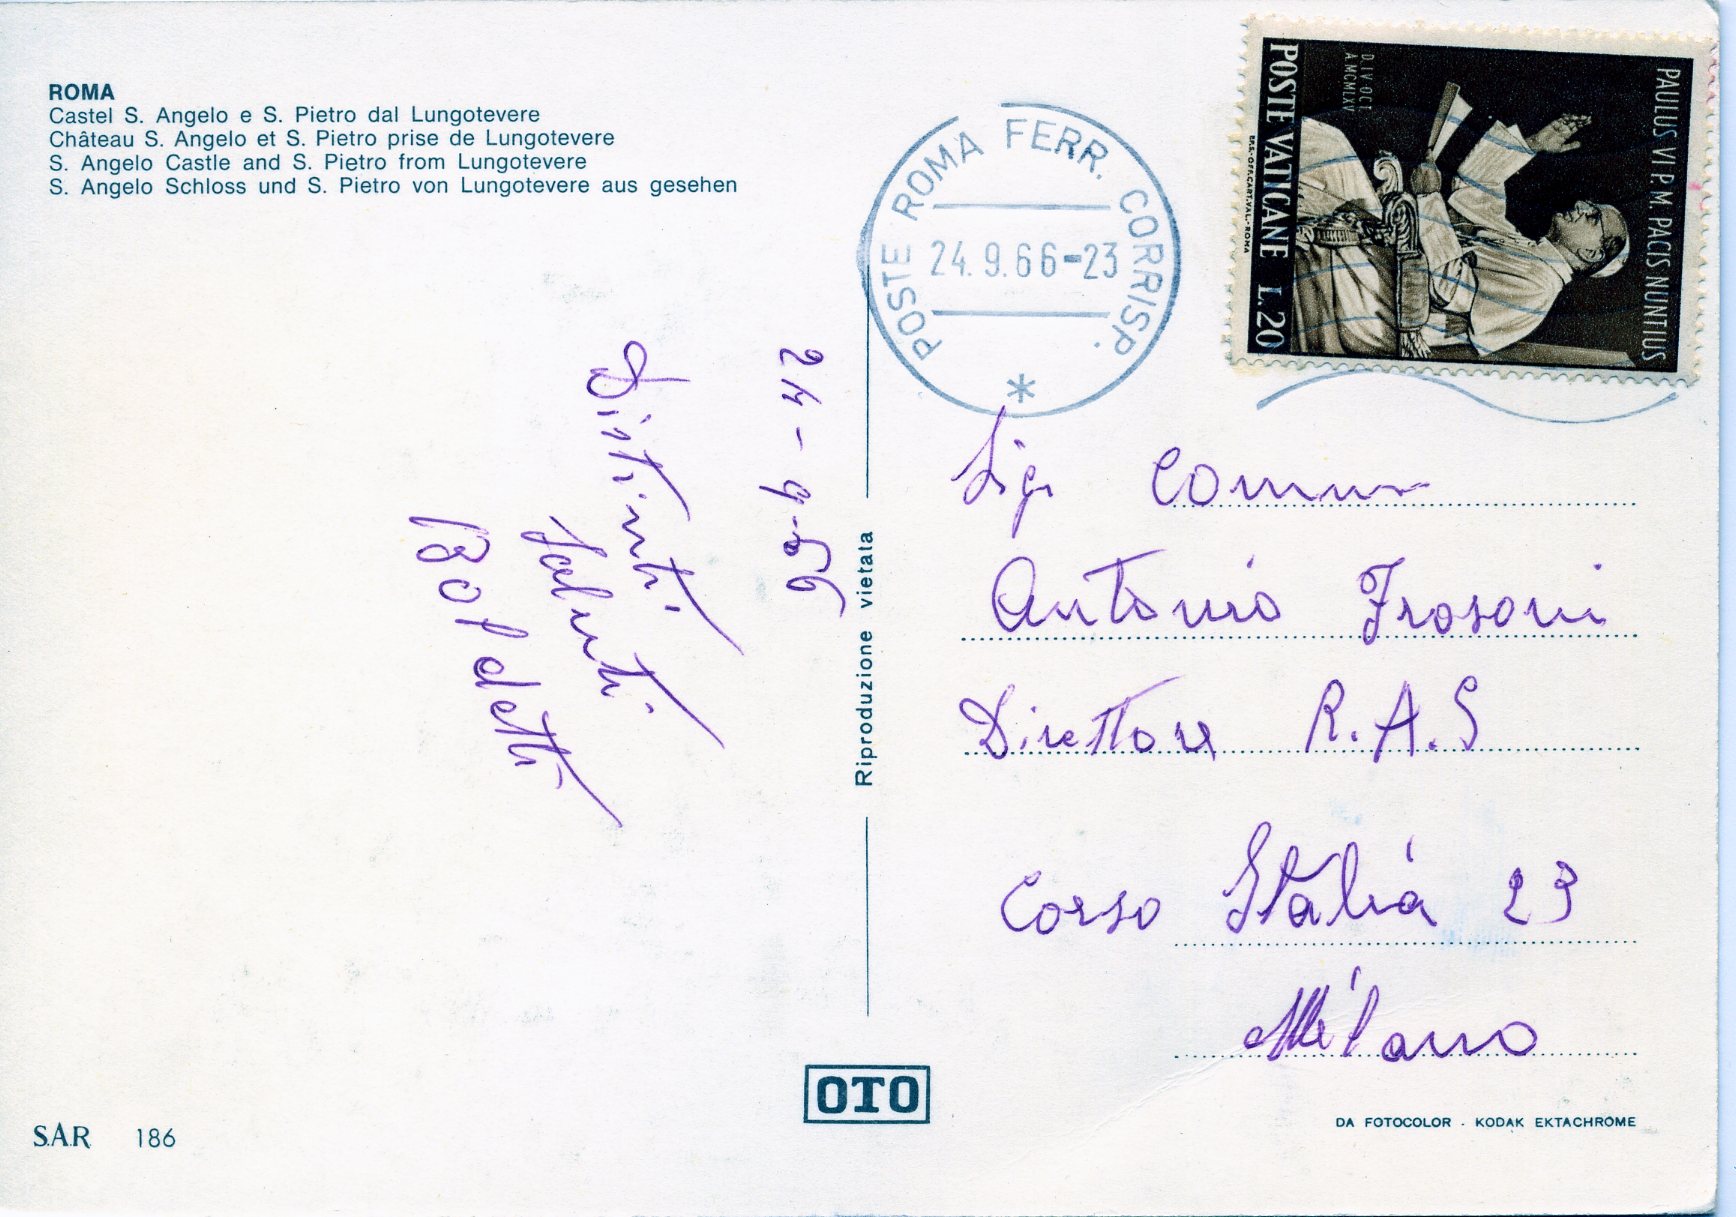 ROMA
Castel S. Angelo e S. Pietro dal Lungotevere
Château S. Angelo et S. Pietro prise de Lungotevere
S. Angelo Castle and S. Pietro from Lungotevere
S. Angelo Schloss und S. Pietro von Lungotevere aus gesehen
POSTE ROMA FERR. CORRISP.
24.9.66-23
*
PAULUS VI P.M. PACIS NUNTIUS
D. IV OCT.
A. MCMLXV
POSTE VATICANE L. 20
P.P.S.-OFF.CART.VAL.-ROMA
24-9-66
Distinti
Saluti
Boldetti
Riproduzione vietata
Antonio Frosoni
Direttore R.A.S
Corso Italia 23
Milano
OTO
S.A.R 186
DA FOTOCOLOR - KODAK EKTACHROME